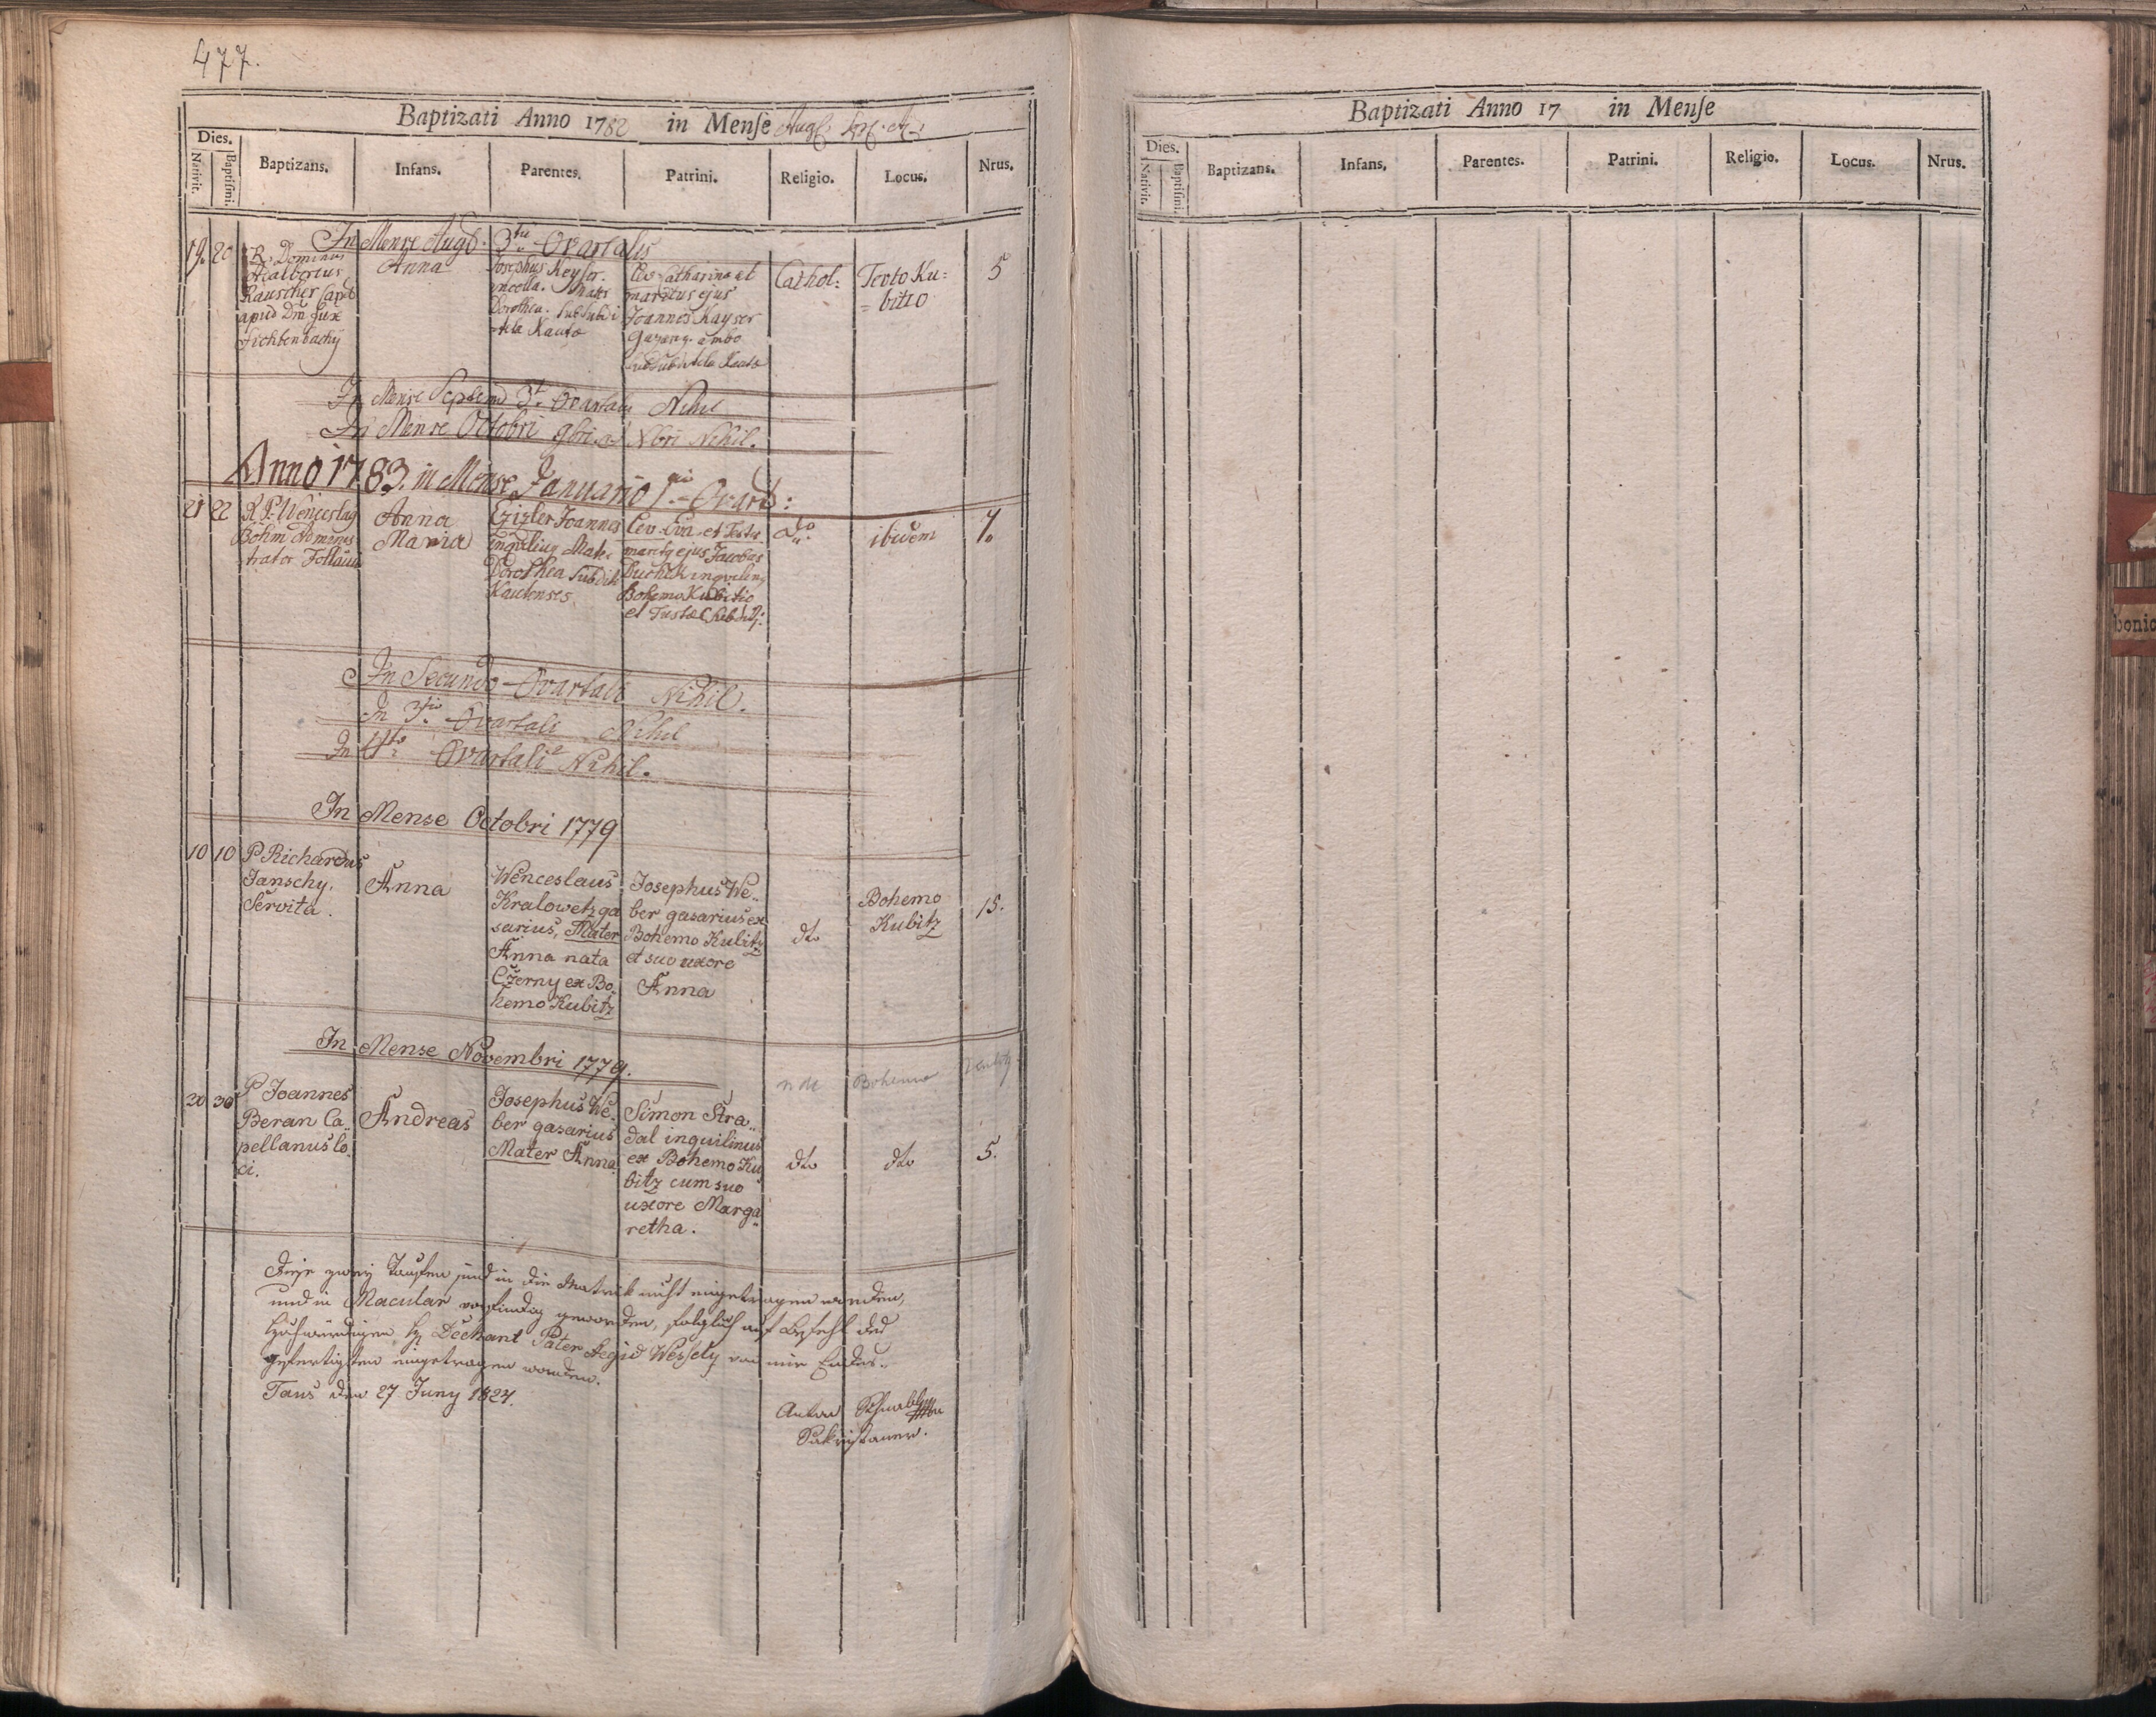 477.
Baptizati Anno 1782 in Menſe Augṡ
Dies.
Nativit.
Baptiſmi.
Baptizans.
Infans.
Parentes.
Patrini.
Religio.
Locus.
Nrus.
In Mense Augṡ. 3tii Quartalis
19. 20
R. Dominus
Adalbertus
Rauscher Cap
apud
Fichtenbachÿ
Anna
Josephus Keyser
incola. Mater
Dorothea. subditi
Kauta
Lev. Catharina et
maritus ejus
Joannes Kayser
ambo
Cathol:
Teoto Ku=
=bitio
5
In Mense Septemb 3t. Quartalis Nihil
In Mense Octobri 9bri et Xbri Nihil.
Anno 1783. in Mense Januario 1mi Quart:
21 22
R. P. Wenceslaꝯ
Böhm Adminis
trator Follaun
Anna
Maria
Czizler Joannes
inquilinꝯ Mat.
Dorothea Subditi
Kautenses
Lev. Eva et Testis
maritꝯ ejus Jacobus
Buchtek inquilinꝯ
Bohemo Kubitio
et Tustae
dto
ibidem
7.
In Secundo Quartali Nihil.
In 3tio Quartali Nihil
In 4to Quartali Nihil.
In Mense Octobri 1779
10 10
P Richardus
Janschy,
Servita.
Anna
Wenceslaus
Kralowetz ga
sarius, Mater
Anna nata
Czerny ex Bo„
hemo Kubitz
Josephus We„
ber gasarius ex
Bohemo Kubitz
et suo uxore
Anna
dto
Bohemo
Kubitz
15.
In Mense Novembri 1779.
Bohemo Kubitz
30 30
P Joannes
Beran Ca„
pellanus lo„
ci.
Andreas
Josephus We„
ber gasarius
Mater Anna
Simon Stra„
dal inquilinus
ex Bohemo Ku
bitz cum suo
uxore Marga„
retha.
dto
dto
5.
Diese zwey Taufen sind in die Matrick nicht eingetragen worden,
und in Macular vorfindig geworden, folglich auf Befehl des
Hochwürdigen H. Dechant Pater Aegid Wessely von mir Endes„
gefertigten eingetragen worden.
Taus den 27 Juny 1824.
Anton
Sakristaner.
Baptizati Anno 17 in Menſe
Dies.
Nativit.
Baptiſmi.
Baptizans.
Infans.
Parentes.
Patrini.
Religio.
Locus.
Nrus.